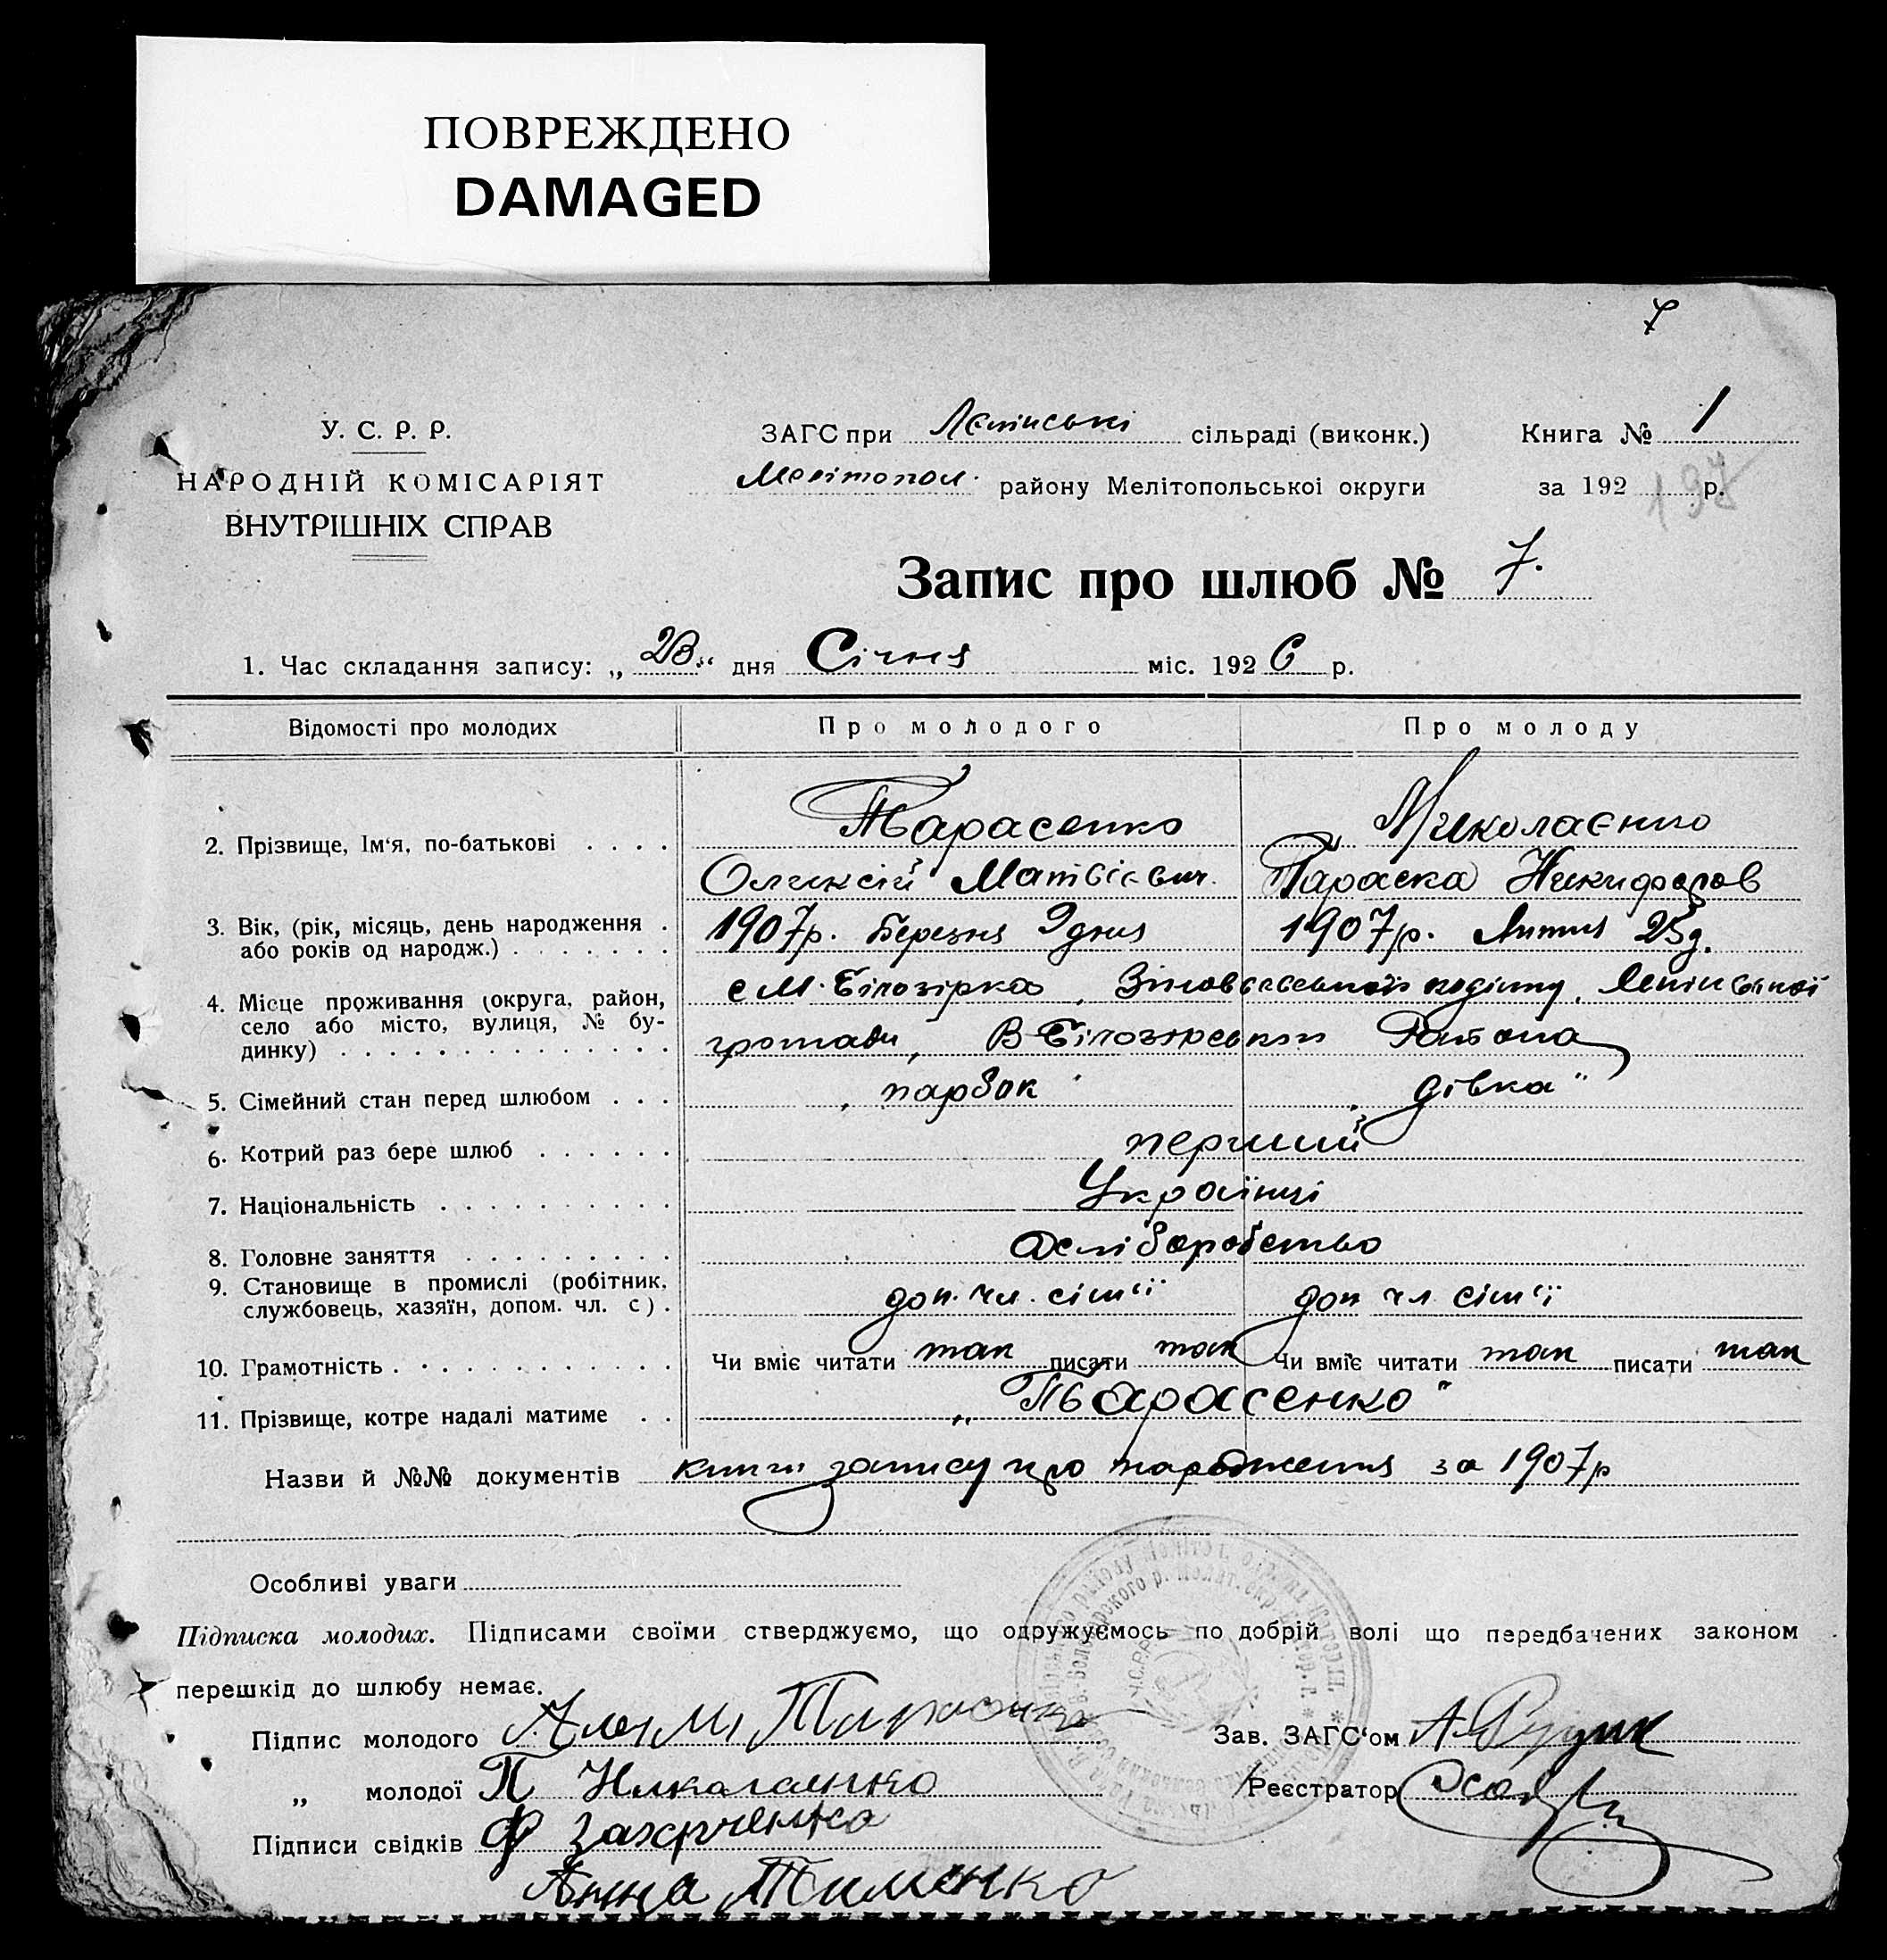 ПОВРЕЖДЕНО
DAMAGED
7
У. С. Р. Р.
НАРОДНІЙ КОМІСАРІЯТ
ВНУТРІШНІХ СПРАВ
ЗАГС при Ленінські сільраді (виконк.) Книга № 1
Мелітопол. району Мелітопольської округи за 192 р.
197
Запис про шлюб № 7.
1. Час складання запису: „ 23 “ дня Січня міс. 192 6 р.
Відомості про молодих Про молодого Про молоду
2. Прізвище, Ім‘я, по-батькові . . . . Тарасенко Миколаєнко
Олексій Матвієвич. Параска Никифоров
3. Вік, (рік, місяць, день народження . 1907р. Березня 9 дня 1907р. Лютня 25д.
або років од народж.) . . . . . . .
4. Місце проживання (округа, район, с М. Білозірка, Ленінської
село або місто, вулиця, № бу-
динку) . . . . . . . . . . . . . . громади, В-Білозірського Району
5. Сімейний стан перед шлюбом . . . „парбок „дівка”
6. Котрий раз бере шлюб . . . . . . перший
7. Національність . . . . . . . . . . Українці
8. Головне заняття . . . . . . . . . хліборобство
9. Становище в промислі (робітник, доп. чл. сім'ї доп чл сім'ї
службовець, хазяїн, допом. чл. с) .
10. Грамотність . . . . . . . . . . . . Чи вміє читати так писати так Чи вміє читати так писати так
11. Прізвище, котре надалі матиме . . „Тарасенко”
Назви й №№ документів книги запису про народження за 1907р
Особливі уваги
Підписка молодих. Підписами своїми стверджуємо, що одружуємось по добрій волі що передбачених законом
перешкід до шлюбу немає.
Підпис молодого Тарасенко Зав. ЗАГС‘ом
„ молодої П Николаенко Реєстратор
Підписи свідків Ф Захрченко
Анна Тименко